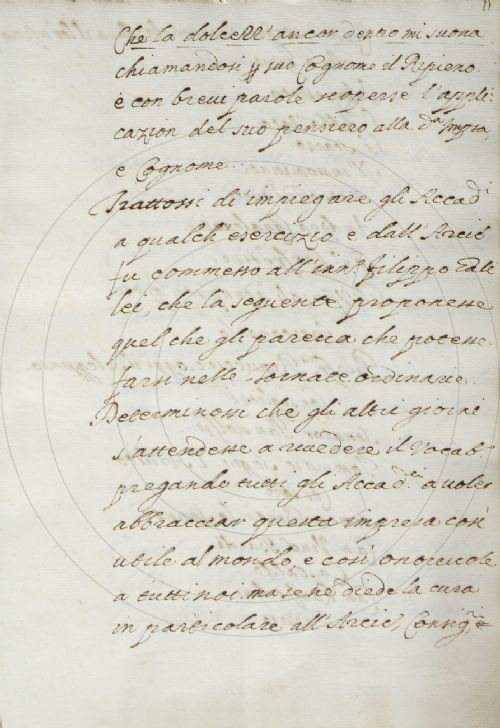 Che la dolcezz' ancor dentro mi suona
chiamandosi p suo Cognome il Ripieno.
e con brevi parole scoperse l'appli-
cazion del suo pensiero alla d.ª Impsa
e Cognome.
Trattossi di impiegare gli Accad.i
a qualch' esercizio e dall' Arcic.
fu commesso all' Inn. Filippo
lei, che la seguente proponesse
quel che gli pareva che potesse
farsi nelle tornate ordinarie.
Determinossi che gli altri giorni
s'attendesse a rivedere il Vocab.
pregando tutti gli Accad.i a voler
abbracciar questa impresa così
utile al mondo, e così onorevole
a tutti noi, ma se ne diede la cura
in particolare all' Arcic.,